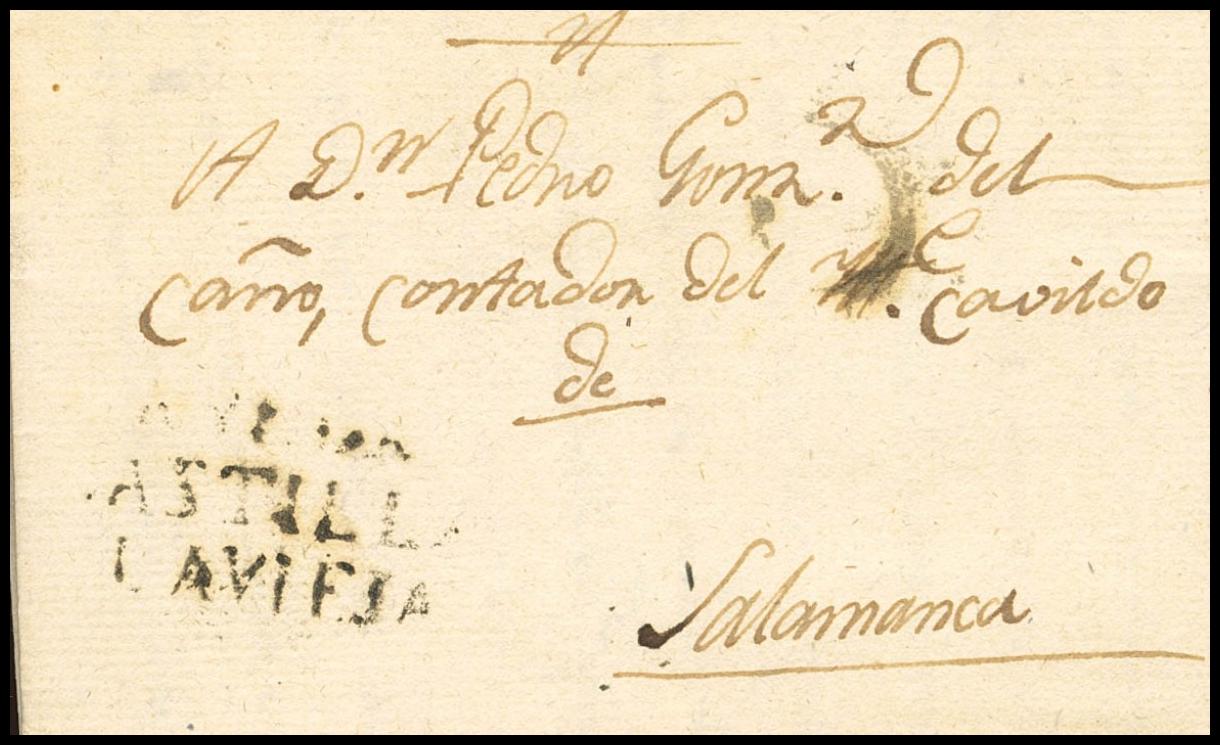 A D.n Pedro Gonz. del
Caño, contador del M.e Cavildo
de
ASTILLA
LAVIEJA
Salamanca